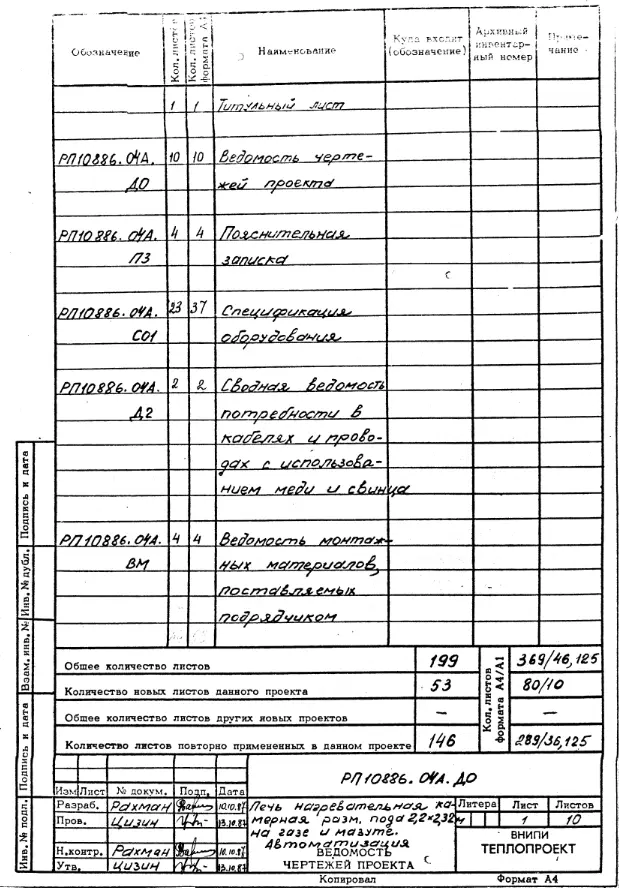 Обозначение
Кол. листов
Кол. листов формата А4
Наименование
Куда входит (обозначение)
Архивный инвентарный номер
Примечание
1 1 Титульный лист
РП10886.04А. 10 10 Ведомость черте-
ДО жей проекта
РП10886.04А. 4 4 Пояснительная
ПЗ записка
РП10886.04А. 23 37 Спецификация
СО1 оборудования
РП10886.04А. 2 2 Сводная ведомость
Д2 потребности в
кабелях и прово-
дах с использова-
нием меди и свинца
РП10886.04А. 4 4 Ведомость монтаж-
ВМ ных материалов,
поставляемых
подрядчиком
Общее количество листов 199 369/46,125
Количество новых листов данного проекта 53 80/10
Общее количество листов других новых проектов — —
Количество листов повторно примененных в данном проекте 146 289/36,125
Кол. листов формата А4/А1
Подпись и дата
Инв. № дубл.
Взам. инв. №
Подпись и дата
Инв. № подл.
РП10886.04А.ДО
Изм Лист № докум. Подп. Дата
Разраб. Рахман 10.10.87
Пров. Цизин 13.10.87
Н.контр. Рахман 10.10.87
Утв. Цизин 13.10.87
Печь нагревательная ка-
мерная разм. пода 2,2×2,32м
на газе и мазуте.
Автоматизация
ВЕДОМОСТЬ
ЧЕРТЕЖЕЙ ПРОЕКТА
Литера Лист Листов
1 10
ВНИПИ
ТЕПЛОПРОЕКТ
Копировал Формат А4